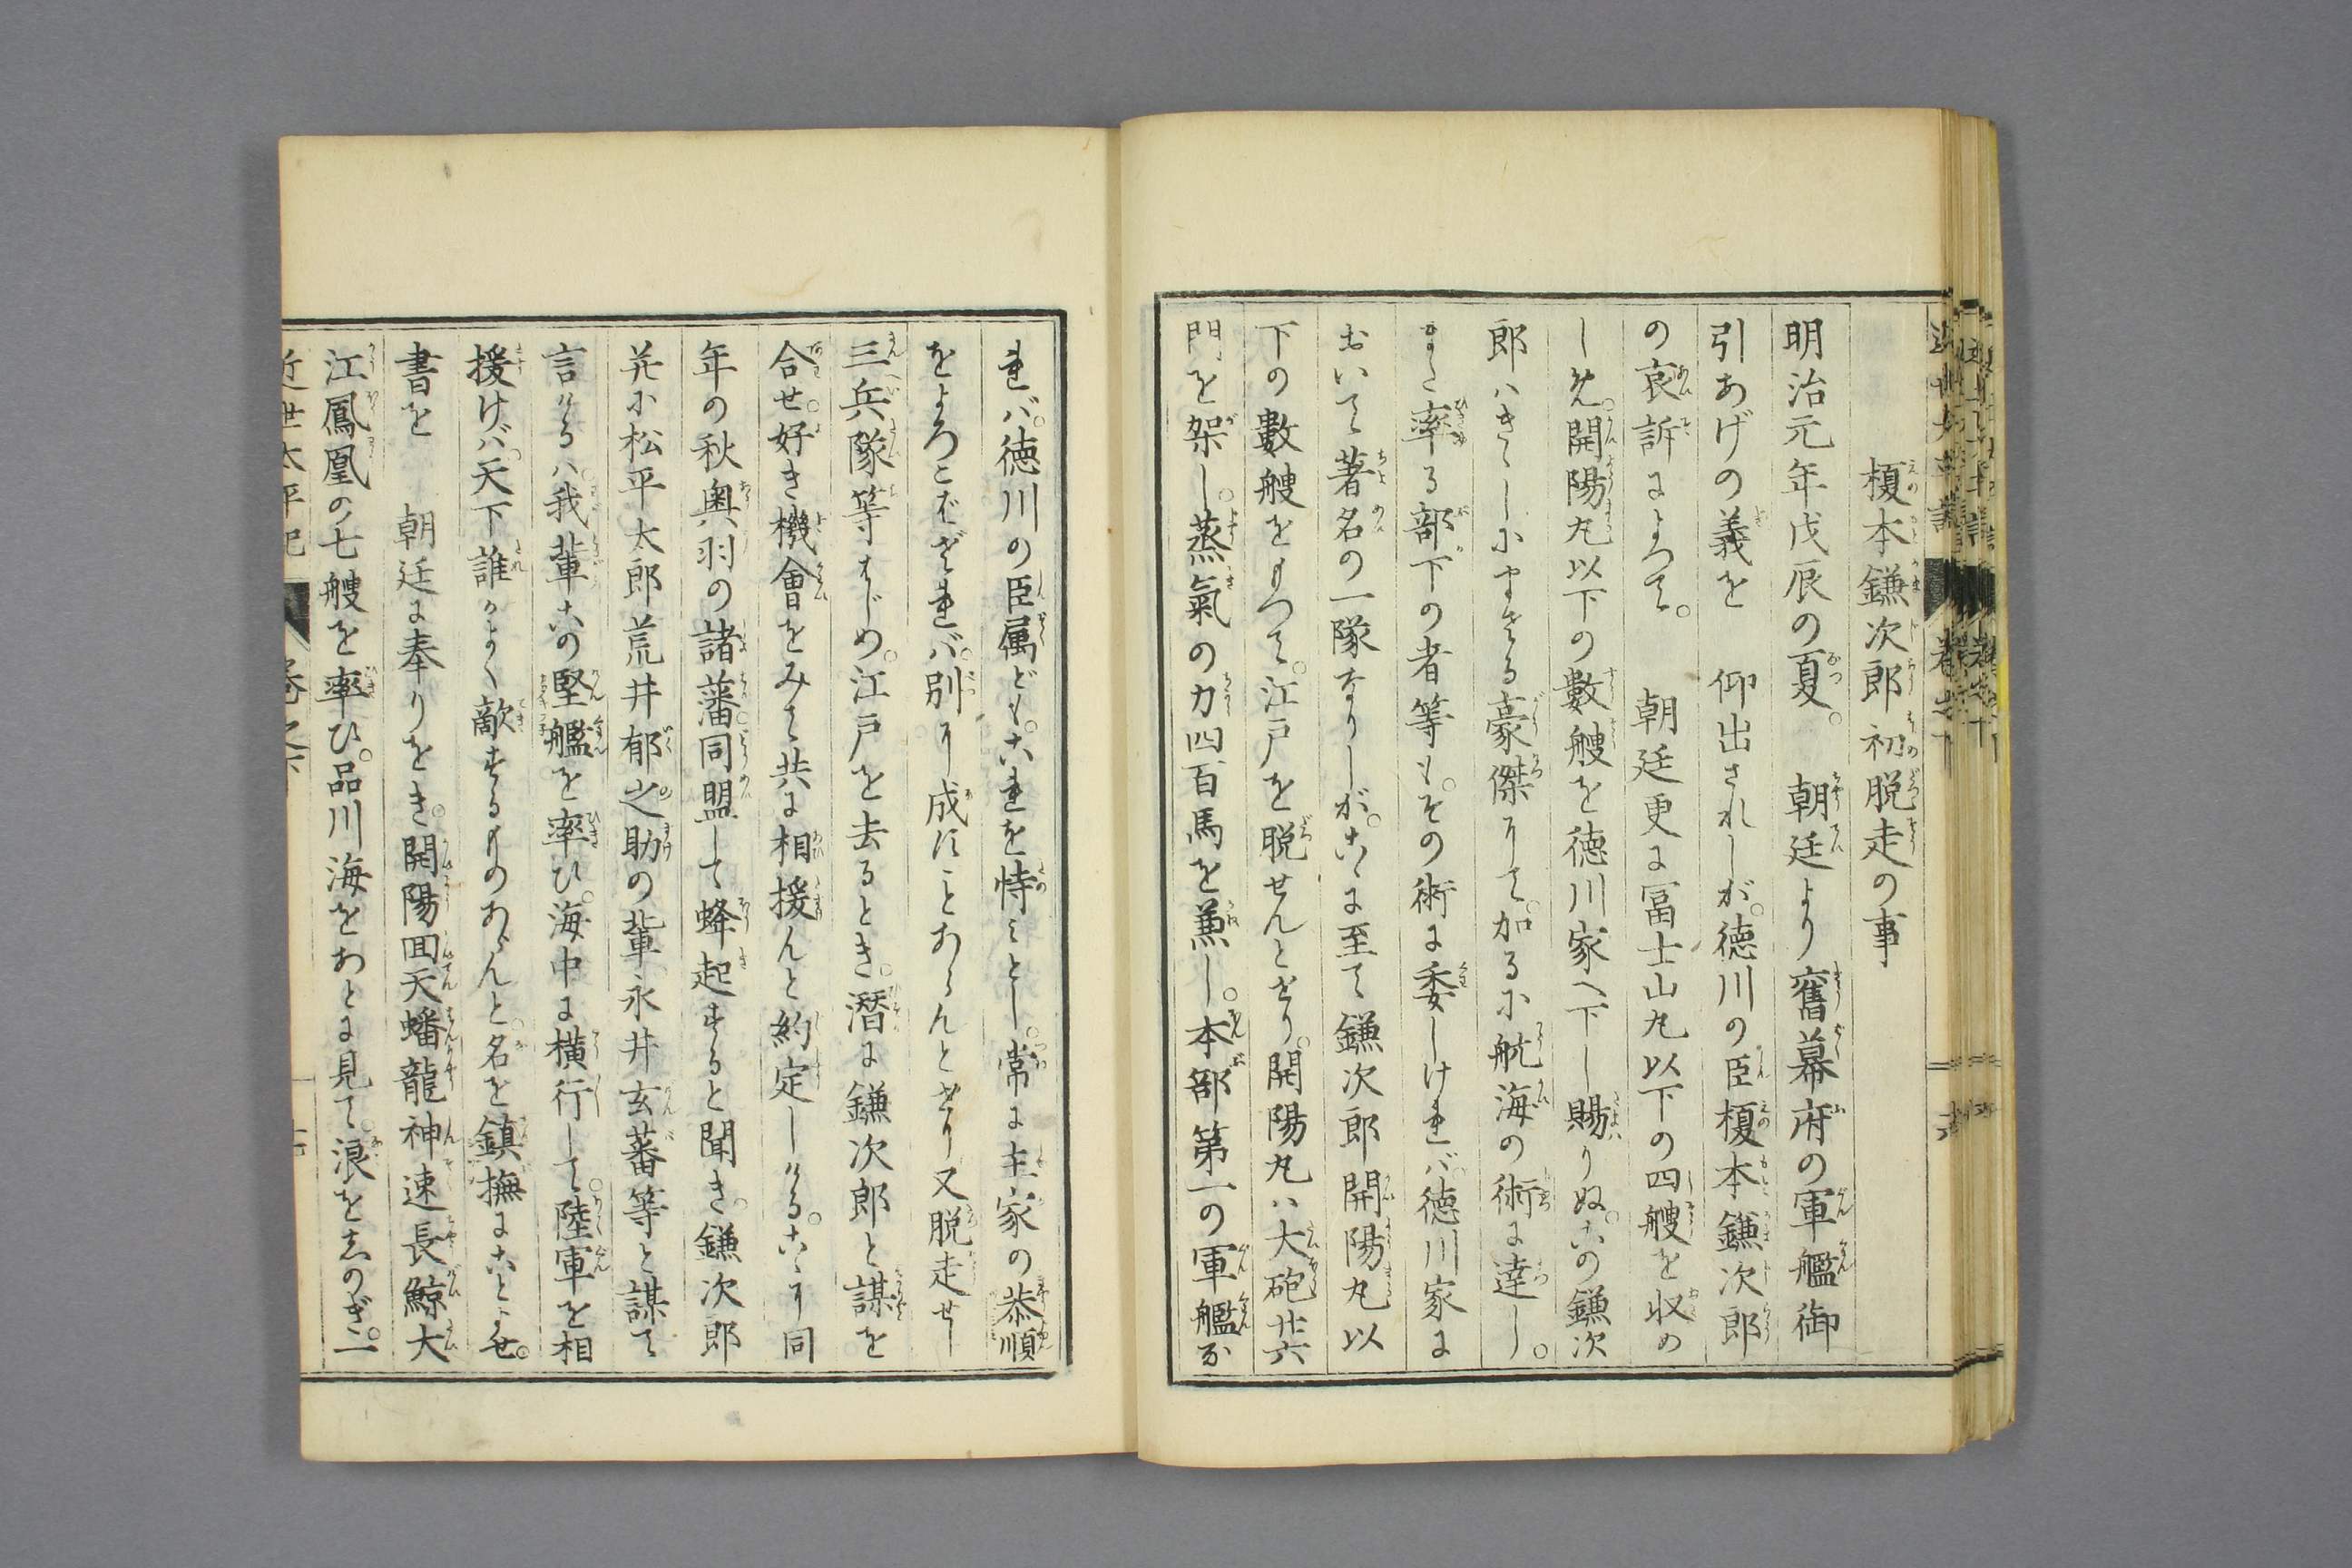 榎本鎌次郎初脱走の事
明治元年戊辰の夏。　朝廷より舊幕府の軍艦御
引あげの義を　仰出されしが。徳川の臣榎本鎌次郎
の哀訴によつて。　朝廷更に冨士山丸以下の四艘を収め
しめ。開陽丸以下の數艘を徳川家へ下し賜りぬ。この鎌次
郎ハきこしにまさる豪傑にて。加るに航海の術に達し。
また率る部下の者等も。その術に委しけれバ。徳川家に
おいて著名の一隊なりしが。こゝに至て鎌次郎開陽丸以
下の數艘をもつて。江戸を脱せんとせり。開陽丸ハ大砲廿六
門を架し。蒸氣の力四百馬を兼し。本部第一の軍艦な
れバ。徳川の臣属ども。これを恃みとし。常に主家の恭順
をよろこばざれバ。別に成すことあらんとせり又脱走せし
三兵隊等はじめ。江戸を去るとき。潜に鎌次郎と謀を
合せ。好き機會をみて共に相援んと約定しける。こゝに同
年の秋奥羽の諸藩。同盟して蜂起すると聞き。鎌次郎
并に松平太郎荒井郁之助の輩永井玄蕃等と謀て
言けるハ。我輩この堅艦を率ひ。海中に横行して。陸軍を相
援けバ。天下誰かよく敵するものあらんと。名を鎮撫によせ。
書を　朝廷に奉りをき。開陽回天蟠龍神速長鯨大
江鳳凰の七艘を率ひ。品川海をあとに見て。浪をしのぎ。一
近世太平記　巻之下